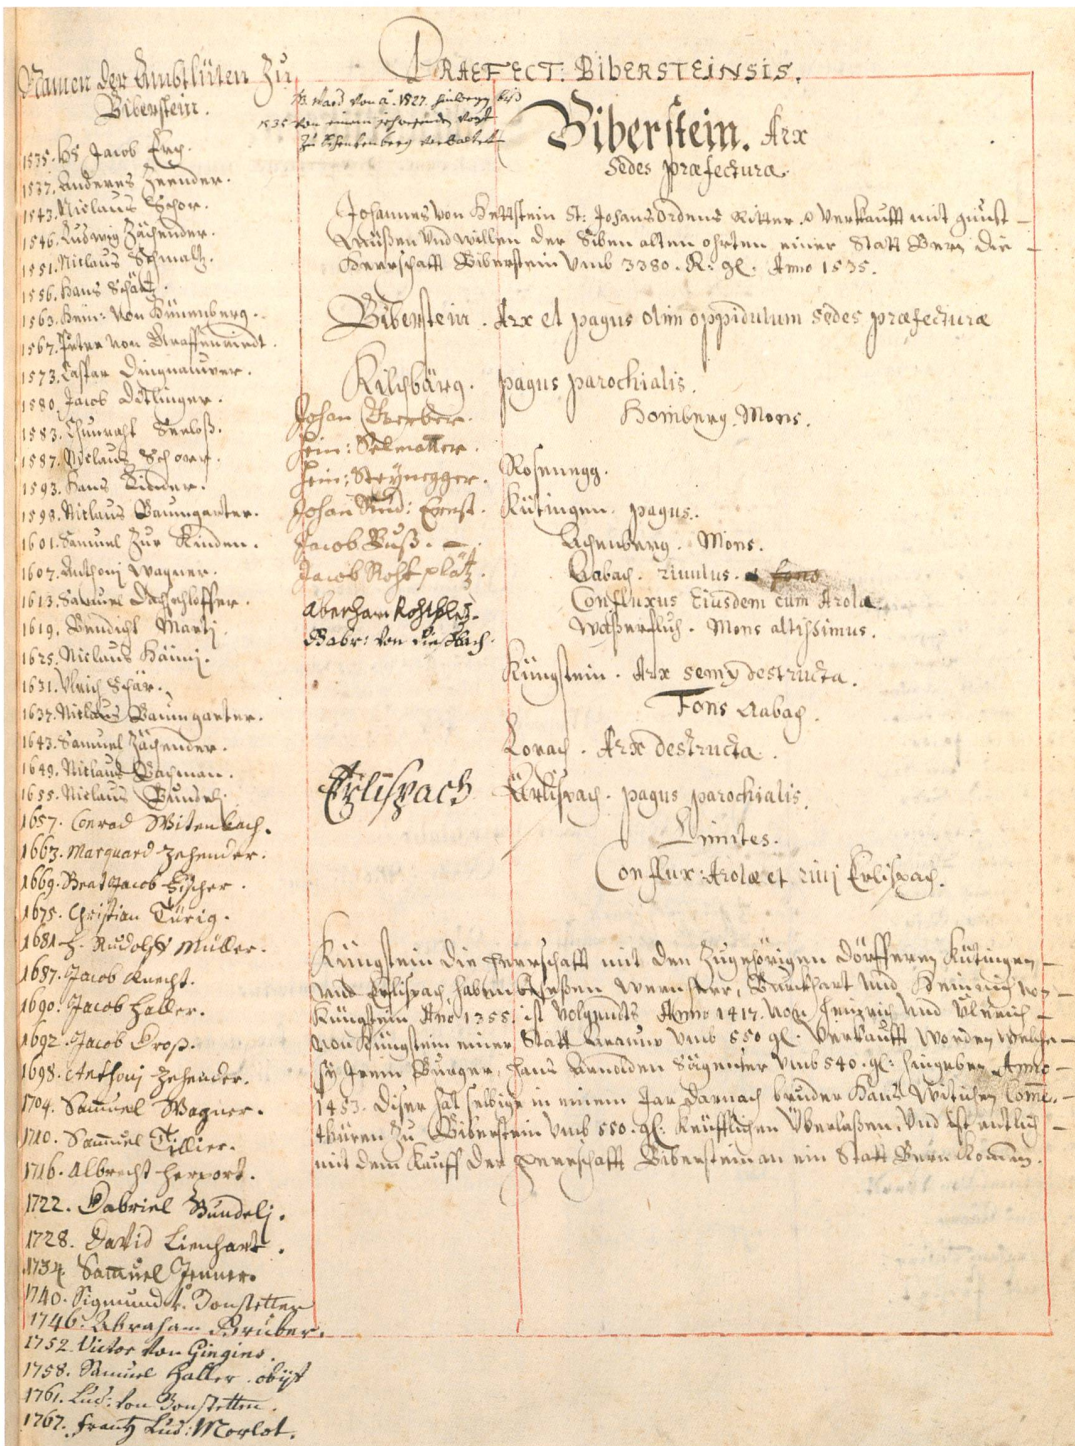 PRAEFECT: BIBERSTEINSIS.
Namen der Ambtlüten Zu
Biberstein.
1535. Hs Jacob
1537. Anderes Zeender.
1543. Niclaus Schor.
1546. Ludwig Zächender.
1551. Niclaus Schmalz.
1556. Hans Schütz.
1563. Hein: Von Hünenberg.
1567. Peter von Graffenriedt.
1573. Caspar Dingnauwer.
1580. Jacob Ditlinger.
1583. Chunraht Seeloß.
1587. Niclaus Schorr.
1593. Hans Kinder.
1598. Niclaus Baumgarter.
1601. Samuel Zur Kinden.
1607. Anthonj Wagner.
1613. Samuel Dachselhoffer.
1619. Bendicht Martj
1625. Niclaus Hämj.
1631. Ulrich Schär.
1637. Niclaus Baumgarter.
1643. Samuel Zächender.
1649. Niclaus Bachman.
1655. Niclaus Bundelj
1657. Conrad Witenbach.
1663. Marquard Zehender.
1669. Beat Jacob Fischer.
1675. Christian Türig.
1681. H. Rudolff Müller.
1687. Jacob Knecht.
1690. Jacob Haller.
1692. Jacob Groß.
1698. Anthonj Zehender.
1704. Samuel Wagner.
1710. Samuel Tillier.
1716. Albrecht Herport.
1722. Gabriel Bundelj.
1728. David Lienhart.
1734. Samuel Jenner.
1740. Sigmund v. Bonstetten
1746. Abraham Gruber.
1752. Victor von Gingins.
1758. Samuel Haller. obijt
1761. Lud: von Bonstetten.
1767. Frantz Lud: Morlot.
Ward von A. 1527 hinweg biß
1535 von einem Vogt
zu Schenkenberg verwaltet
Biberstein. Arx
Sedes præfectura.
Johannes von Hettstein St: Johans Ordens Ritter. Verkaufft mit gunst
Wüßen und willen der Siben alten ohrten einer Statt Bern die
Herrschafft Biberstein Umb 3380. R: gl. Anno 1535.
Biberstein. Arx et pagus olim oppidulum sedes præfecturæ
Kilchbärg. pagus parochialis.
Homberg. Mons.
Johan Gerber.
Hein: Selmatter.
Hein: Steynegger.
Johan Rud: Ernst.
Jacob Buß.
Jacob Rohtplätz.
Aberham Rohtpletz.
Gabr: von Dießbach.
Rosenegg.
Kütingen. pagus.
Achenberg. Mons.
Aabach. rivulus. fons
Confluxus Eiusdem cum Arola.
Waßerfluh. Mons altissimus.
Küngstein. Arx semydestructa.
Fons Aabach.
Lorach. Arx destructa.
Erlispach
Ärlispach. pagus parochialis.
Limites.
Conflux: Arolæ et rivj Erlispach.
Küngstein die Herrschafft mit den Zugehörigen Dörfferen Kütingen
und Erlispach, haben beseßen Wernherr, Burckhart Und Heinrich von
Küngstein Ano 1355. ist Volgendts Anno 1417. von Heinrich und Ulrich
von Küngstein einer Statt Arauw Umb 550 gl. Verkaufft Worden, welche
sy Irem Burger, Hans Arnolden Sägenser Umb 540. gl: hingeben Anno
1453. Diser hat selbige in einem Jar darnach bruder Hans Wittichen Come.
thüren Zu Biberstein Umb 550. gl: Keüfflichen Überlaßen, Und ist entlich
mit dem Kauff der Herrschafft Biberstein an ein Statt Bern Komen.